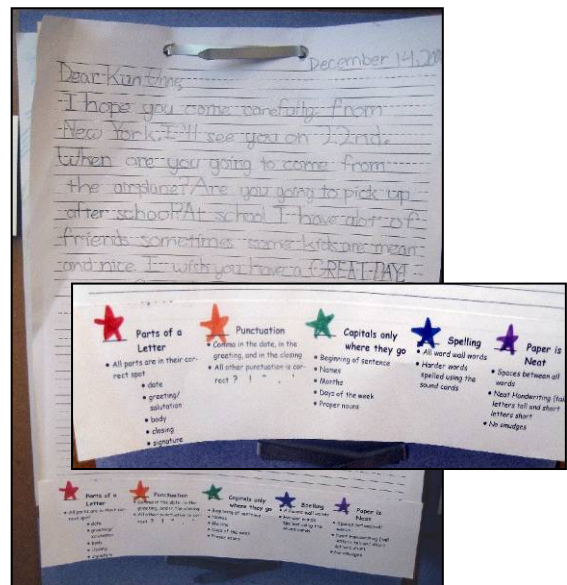 December 14, 20
Dear Kun
I hope you come carefully from
New York. I'll see you on 22nd.
When are you going to come from
the airplane? Are you going to pick up
after school? At school I have alot of
friends sometimes some kids are mean
and nice I wish you have a GREAT DAY!
Parts of a
Letter
• All parts are in their cor-
rect spot
• date
• greeting/
salutation
• body
• closing
• signature
Punctuation
• Comma in the date, in the
greeting, and in the closing
• All other punctuation is cor-
rect ? ! " , . '
Capitals only
where they go
• Beginning of sentence
• Names
• Months
• Days of the week
• Proper nouns
Spelling
• All word wall words
• Harder words
spelled using the
sound cards
Paper is
Neat
• Spaces between all
words
• Neat Handwriting (tall
letters tall and short
letters short
• No smudges
Parts of a
Letter
• All parts are in their cor-
rect spot
• date
• greeting/
salutation
• body
• closing
• signature
Punctuation
• Comma in the date, in the
greeting, and in the closing
• All other punctuation is cor-
rect ? ! " , . '
Capitals only
where they go
• Beginning of sentence
• Names
• Months
• Days of the week
• Proper nouns
Spelling
• All word wall words
• Harder words
spelled using the
sound cards
Paper is
Neat
• Spaces between all
words
• Neat Handwriting (tall
letters tall and short
letters short
• No smudges